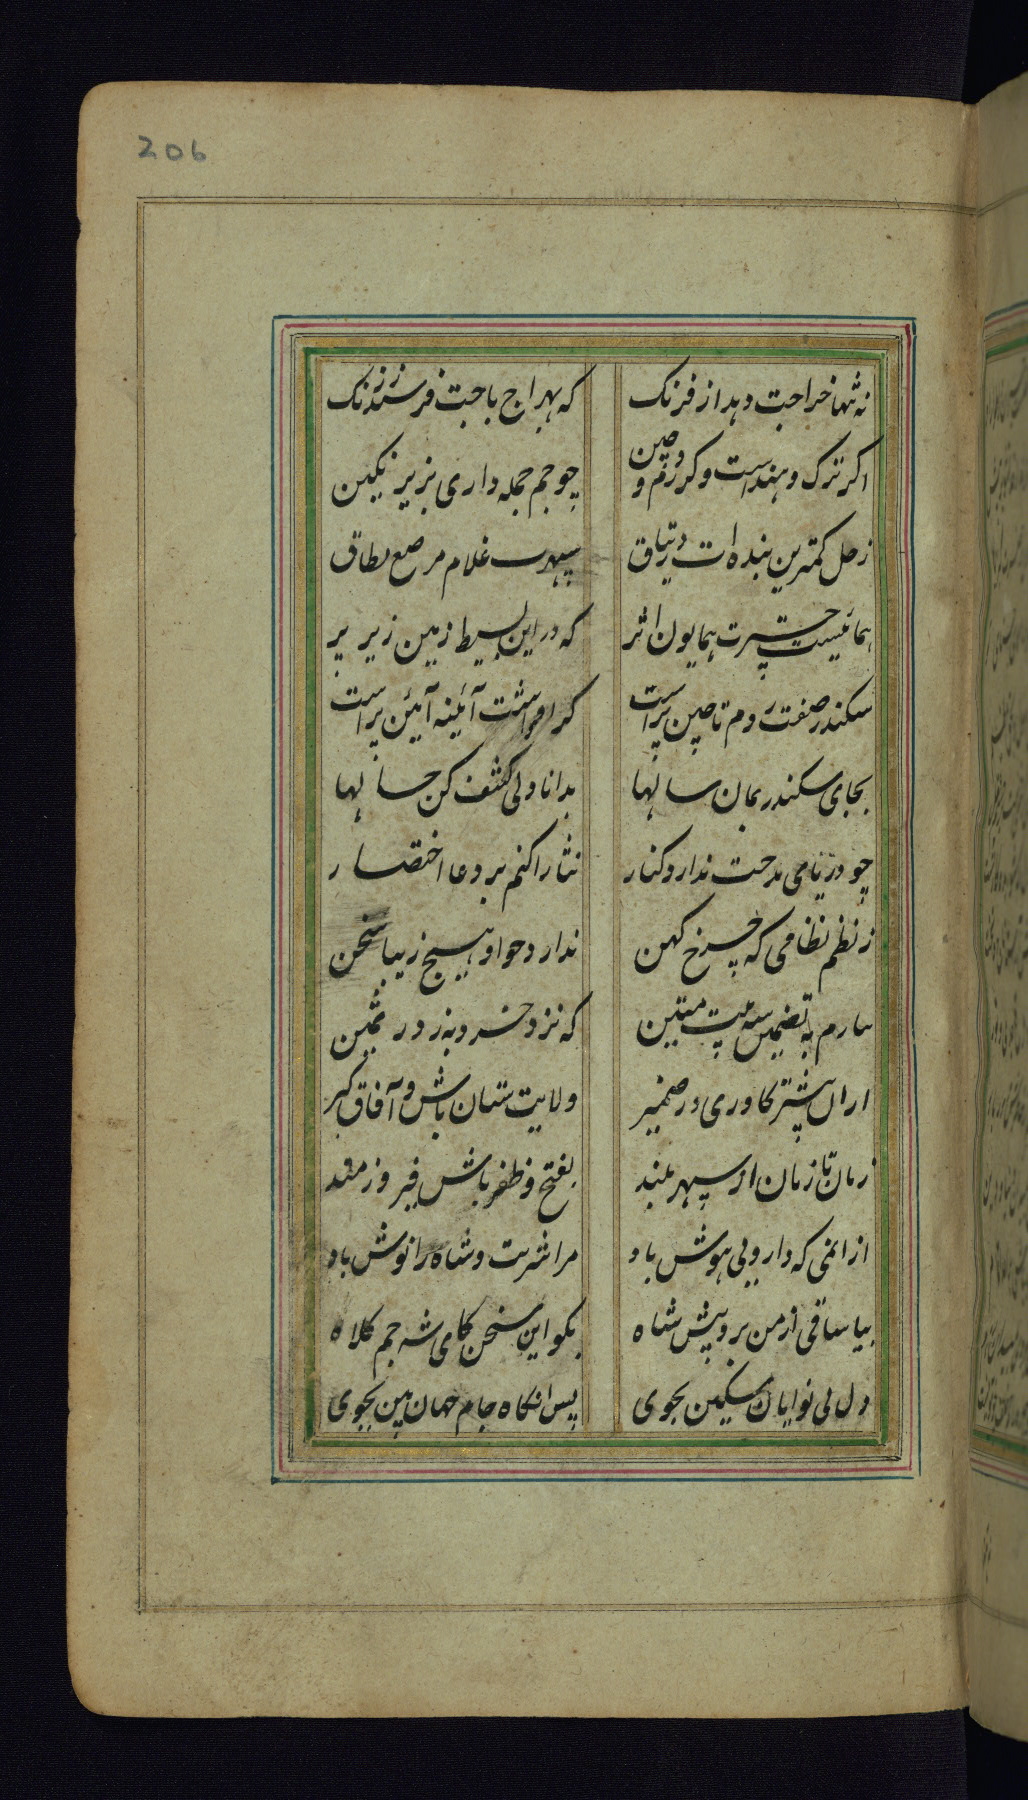 206
نه تنها خراجت دهد از فرنک که بهراج باجت فرستد ز زنک
اکر ترک و هند است و کر روم و چین چو جم جمله داری بزیر نکین
زحل کمترین بنده ات در یتاق سپهرت غلام مرصع نطاق
همائیست چترت همایون اثر که دارد بسیط زمین زیر پر
سکندر صفت روم تا چین تراست کر او داشت آئینه آئین تراست
بجای سکندر بمان سالها بدانا دلی کشف کن حالها
چو دریای مدحت ندارد کنار نثارا کنم بر دعا اختصار
ز نظم نظامی که چرخ کهن ندارد چو او هیچ زیبا سخن
بیارم به تضمین سه بیت متین که نزد خرد به ز در ثمین
از ان پیشتر کاوری در ضمیر ولایت ستان باش و آفاق کیر
زمان تا زمان از سپهر بلند بفتح و ظفر باش فیروزمند
از انمی که داروی هوش باد مرا شربت و شاه را نوش باد
بیا ساقی از من برو پیش شاه بکو این سخن کای شه جم کلاه
دل بی نوایان مسکین بجوی پس انکاه جام جهان بین بجوی